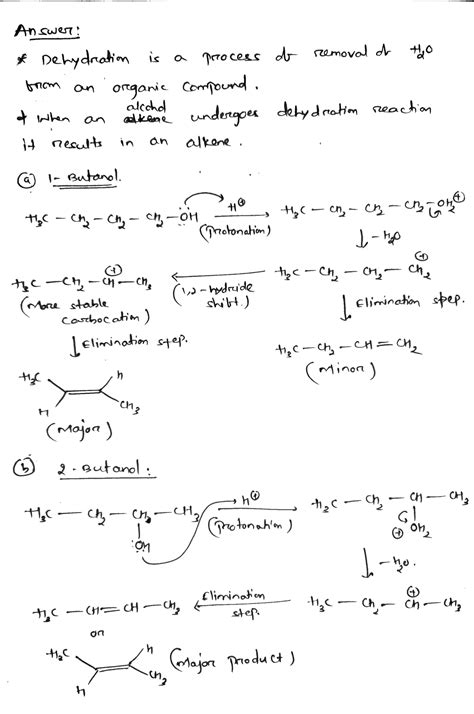 Answer:
* Dehydration is a process of removal of H2O
from an organic compound.
* when an alcohol alkene undergoes dehydration reaction
it results in an alkene.
(a) 1-Butanol.
H3C - CH2 - CH2 - CH2 - ÖH H⊕ (Protonation) H3C - CH2 - CH2 - CH2 - OH2 ⊕
↓ - H2O
H3C - CH2 - CH - CH3 ⊕ (1,2-hydride shift.) H3C - CH2 - CH2 - CH2 ⊕
(More stable carbocation) ↓ Elimination step.
↓ Elimination step. H3C - CH2 - CH = CH2
(Minor)
H3C H
H CH3
(Major)
(b) 2-Butanol:
H3C - CH2 - CH2 - CH3 H⊕ (Protonation) H3C - CH2 - CH - CH3
:OH ⊕ OH2
↓ - H2O.
H3C - CH = CH - CH3 Elimination step. H3C - CH2 - CH - CH3 ⊕
or
H3C H (Major product)
H CH3